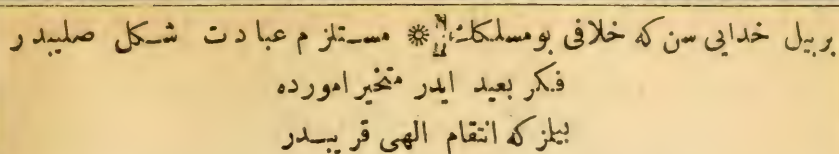 بربيل خدايى سن كه خلافى بو مسلكك ❋ مستلزم عبادت شكل صليبدر
فكر بعيد ايدر متخير امورده
بيلز كه انتقام الهى قريبدر